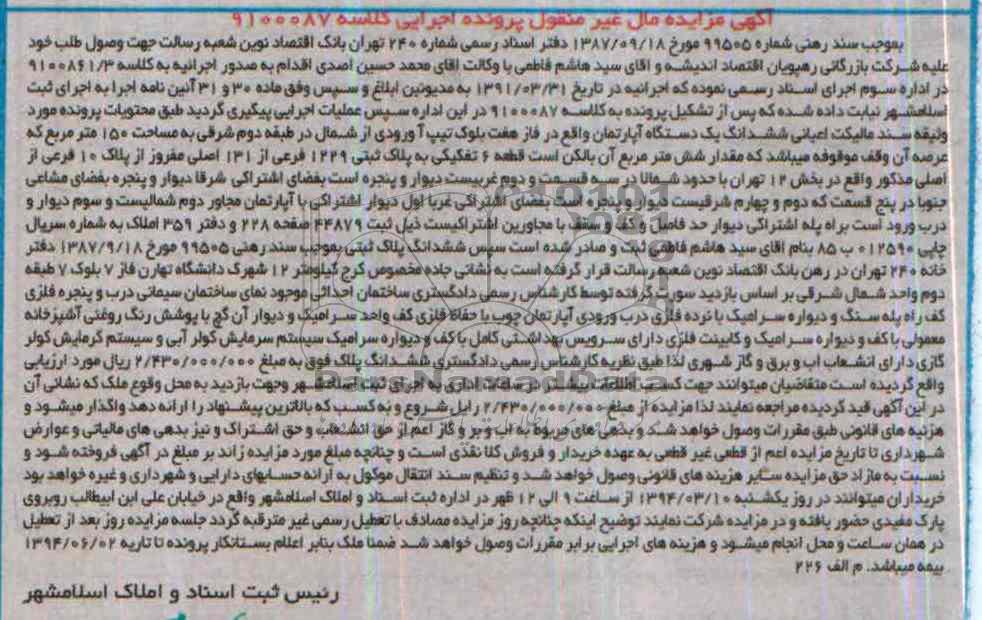 آگهی مزایده مال غیر منقول پرونده اجرایی کلاسه ۹۱۰۰۰۸۷
بموجب سند رهنی شماره ۹۹۵۰۵ مورخ ۱۳۸۷/۰۹/۱۸ دفتر اسناد رسمی شماره ۲۴۰ تهران بانک اقتصاد نوین شعبه رسالت جهت وصول طلب خود
علیه شرکت بازرگانی رهپویان اقتصاد اندیشه و اقای سید هاشم فاطمی با وکالت اقای محمد حسین اصدی اقدام به صدور اجرائیه به کلاسه ۹۱۰۰۸۶۱/۳
در اداره سوم اجرای اسناد رسمی نموده که اجرائیه در تاریخ ۱۳۹۱/۰۳/۳۱ به مدیونین ابلاغ و سپس وفق ماده ۳۰ و ۳۱ آئین نامه اجرا به اجرای ثبت
اسلامشهر نیابت داده شده که پس از تشکیل پرونده به کلاسه ۹۱۰۰۰۸۷ در این اداره سپس عملیات اجرایی پیگیری گردید طبق محتویات پرونده مورد
وثیقه سند مالیکت اعیانی ششدانگ یک دستگاه آپارتمان واقع در فاز هفت بلوک تیپ آ ورودی از شمال در طبقه دوم شرقی به مساحت ۱۵۰ متر مربع که
عرصه آن وقف موقوفه میباشد که مقدار شش متر مربع آن بالکن است قطعه ۶ تفکیکی به پلاک ثبتی ۱۲۲۹ فرعی از ۱۳۱ اصلی مفروز از پلاک ۱۰ فرعی از
اصلی مذکور واقع در بخش ۱۲ تهران با حدود شمالا در سه قسمت و دوم غربیست دیوار و پنجره است بفضای اشتراکی شرقا دیوار و پنجره بفضای مشاعی
جنوبا در پنج قسمت که دوم و چهارم شرقیست دیوار و پنجره است بفضای اشتراکی غربا اول دیوار اشتراکی با آپارتمان مجاور دوم شمالیست و سوم دیوار و
درب ورود است براه پله اشتراکی دیوار حد فاصل و کف و سقف با مجاورین اشتراکیست ذیل ثبت ۴۴۸۷۹ صفحه ۲۲۸ و دفتر ۳۵۹ املاک به شماره سریال
چاپی ۰۱۲۵۹۰ ب ۸۵ بنام اقای سید هاشم فاطمی ثبت و صادر شده است سپس ششدانگ پلاک ثبتی بموجب سند رهنی ۹۹۵۰۵ مورخ ۱۳۸۷/۹/۱۸ دفتر
خانه ۲۴۰ تهران در رهن بانک اقتصاد نوین شعبه رسالت قرار گرفته است به نشانی جاده مخصوص کرج کیلومتر ۱۲ شهرک دانشگاه تهارن فاز ۷ بلوک ۷ طبقه
دوم واحد شمال شرقی بر اساس بازدید صورت گرفته توسط کارشناس رسمی دادگستری ساختمان احداثی موجود نمای ساختمان سیمانی درب و پنجره فلزی
کف راه پله سنگ و دیواره سرامیک با نرده فلزی درب ورودی آپارتمان چوب با حفاظ فلزی کف واحد سرامیک و دیوار آن گچ با پوشش رنگ روغنی آشپزخانه
معمولی با کف و دیواره سرامیک و کابینت فلزی دارای سرویس بهداشتی کامل با کف و دیواره سرامیک سیستم سرمایش کولر آبی و سیستم گرمایش کولر
گازی دارای انشعاب اب و برق و گاز شهری لذا طبق نظریه کارشناس رسمی دادگستری ششدانگ پلاک فوق به مبلغ ۲/۴۳۰/۰۰۰/۰۰۰ ریال مورد ارزیابی
واقع گردیده است متقاضیان میتوانند جهت کسب اطلاعات بیشتر در ساعات اداری به اجرای ثبت اسلامشهر وجهت بازدید به محل وقوع ملک که نشانی آن
در این آگهی قید گردیده مراجعه نمایند لذا مزایده از مبلغ ۲/۴۳۰/۰۰۰/۰۰۰ رایل شروع و به کسب که بالاترین پیشنهاد را ارائه دهد واگذار میشود و
هزنیه های قانونی طبق مقررات وصول خواهد شد و بدهی های مربوط به اب و بر و گاز اعم از حق انشعاب و حق اشتراک و نیز بدهی های مالیاتی و عوارض
شهرداری تا تاریخ مزایده اعم از قطعی غیر قطعی به عهده خریدار و فروش کلا نقدی است و چنانچه مبلغ مورد مزایده زائد بر مبلغ در آگهی فروخته شود و
نسبت به مازاد حق مزایده سایر هزینه های قانونی وصول خواهد شد و تنظیم سند انتقال موکول به ارائه حسابهای دارایی و شهرداری و غیره خواهد بود
خریداران میتوانند در روز یکشنبه ۱۳۹۴/۰۳/۱۰ از ساعت ۹ الی ۱۲ ظهر در اداره ثبت اسناد و املاک اسلامشهر واقع در خیابان علی ابن ابیطالب روبروی
پارک مفیدی حضور یافته و در مزایده شرکت نمایند توضیح اینکه چنانچه روز مزایده مصادف با تعطیل رسمی غیر مترقبه گردد جلسه مزایده روز بعد از تعطیل
در همان ساعت و محل انجام میشود و هزینه های اجرایی برابر مقررات وصول خواهد شد ضمنا ملک بنابر اعلام بستانکار پرونده تا تاریه ۱۳۹۴/۰۶/۰۲
بیمه میباشد. م الف ۲۲۶
رئیس ثبت اسناد و املاک اسلامشهر